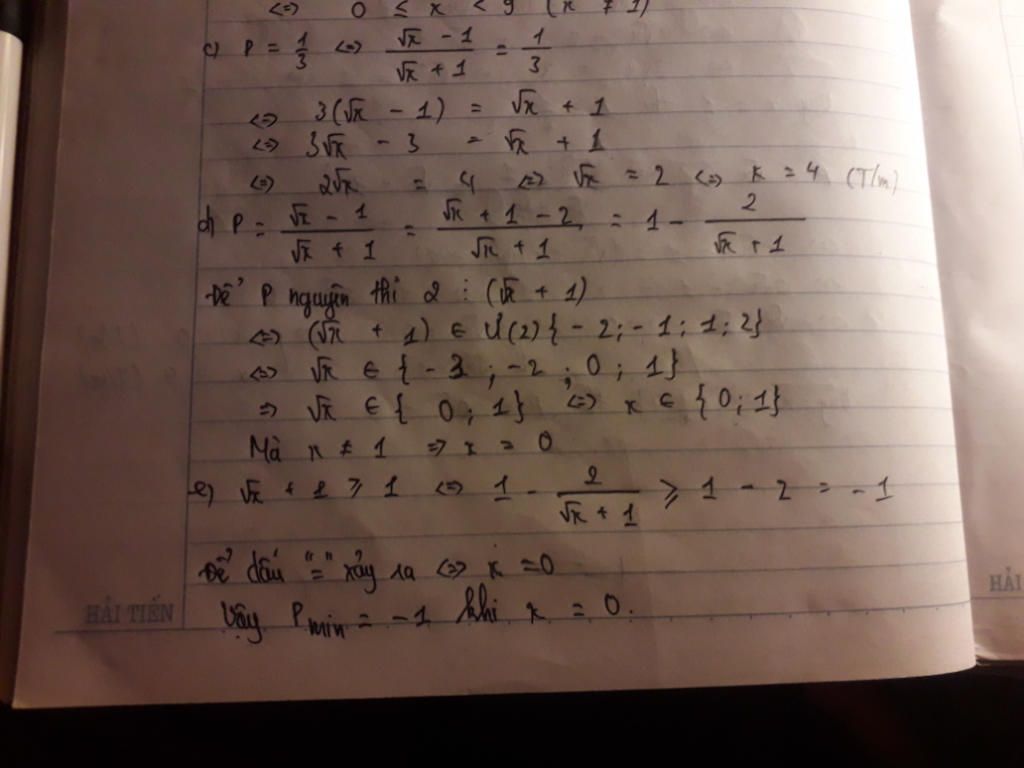 <=> 0 ≤ x < 9 (x ≠ 1)
c) P = 1/3 <=> (√x - 1)/(√x + 1) = 1/3
<=> 3(√x - 1) = √x + 1
<=> 3√x - 3 = √x + 1
<=> 2√x = 4 <=> √x = 2 <=> x = 4 (T/m)
d) P = (√x - 1)/(√x + 1) = (√x + 1 - 2)/(√x + 1) = 1 - 2/(√x + 1)
Để P nguyên thì 2 ⋮ (√x + 1)
<=> (√x + 1) ∈ Ư(2) {-2; -1; 1; 2}
<=> √x ∈ {-3; -2; 0; 1}
=> √x ∈ {0; 1} <=> x ∈ {0; 1}
Mà x ≠ 1 => x = 0
e) √x + 1 ≥ 1 <=> 1 - 2/(√x + 1) ≥ 1 - 2 = -1
Để dấu "=" xảy ra <=> x = 0
Vậy Pmin = -1 khi x = 0.
HẢI TIẾN
HẢI